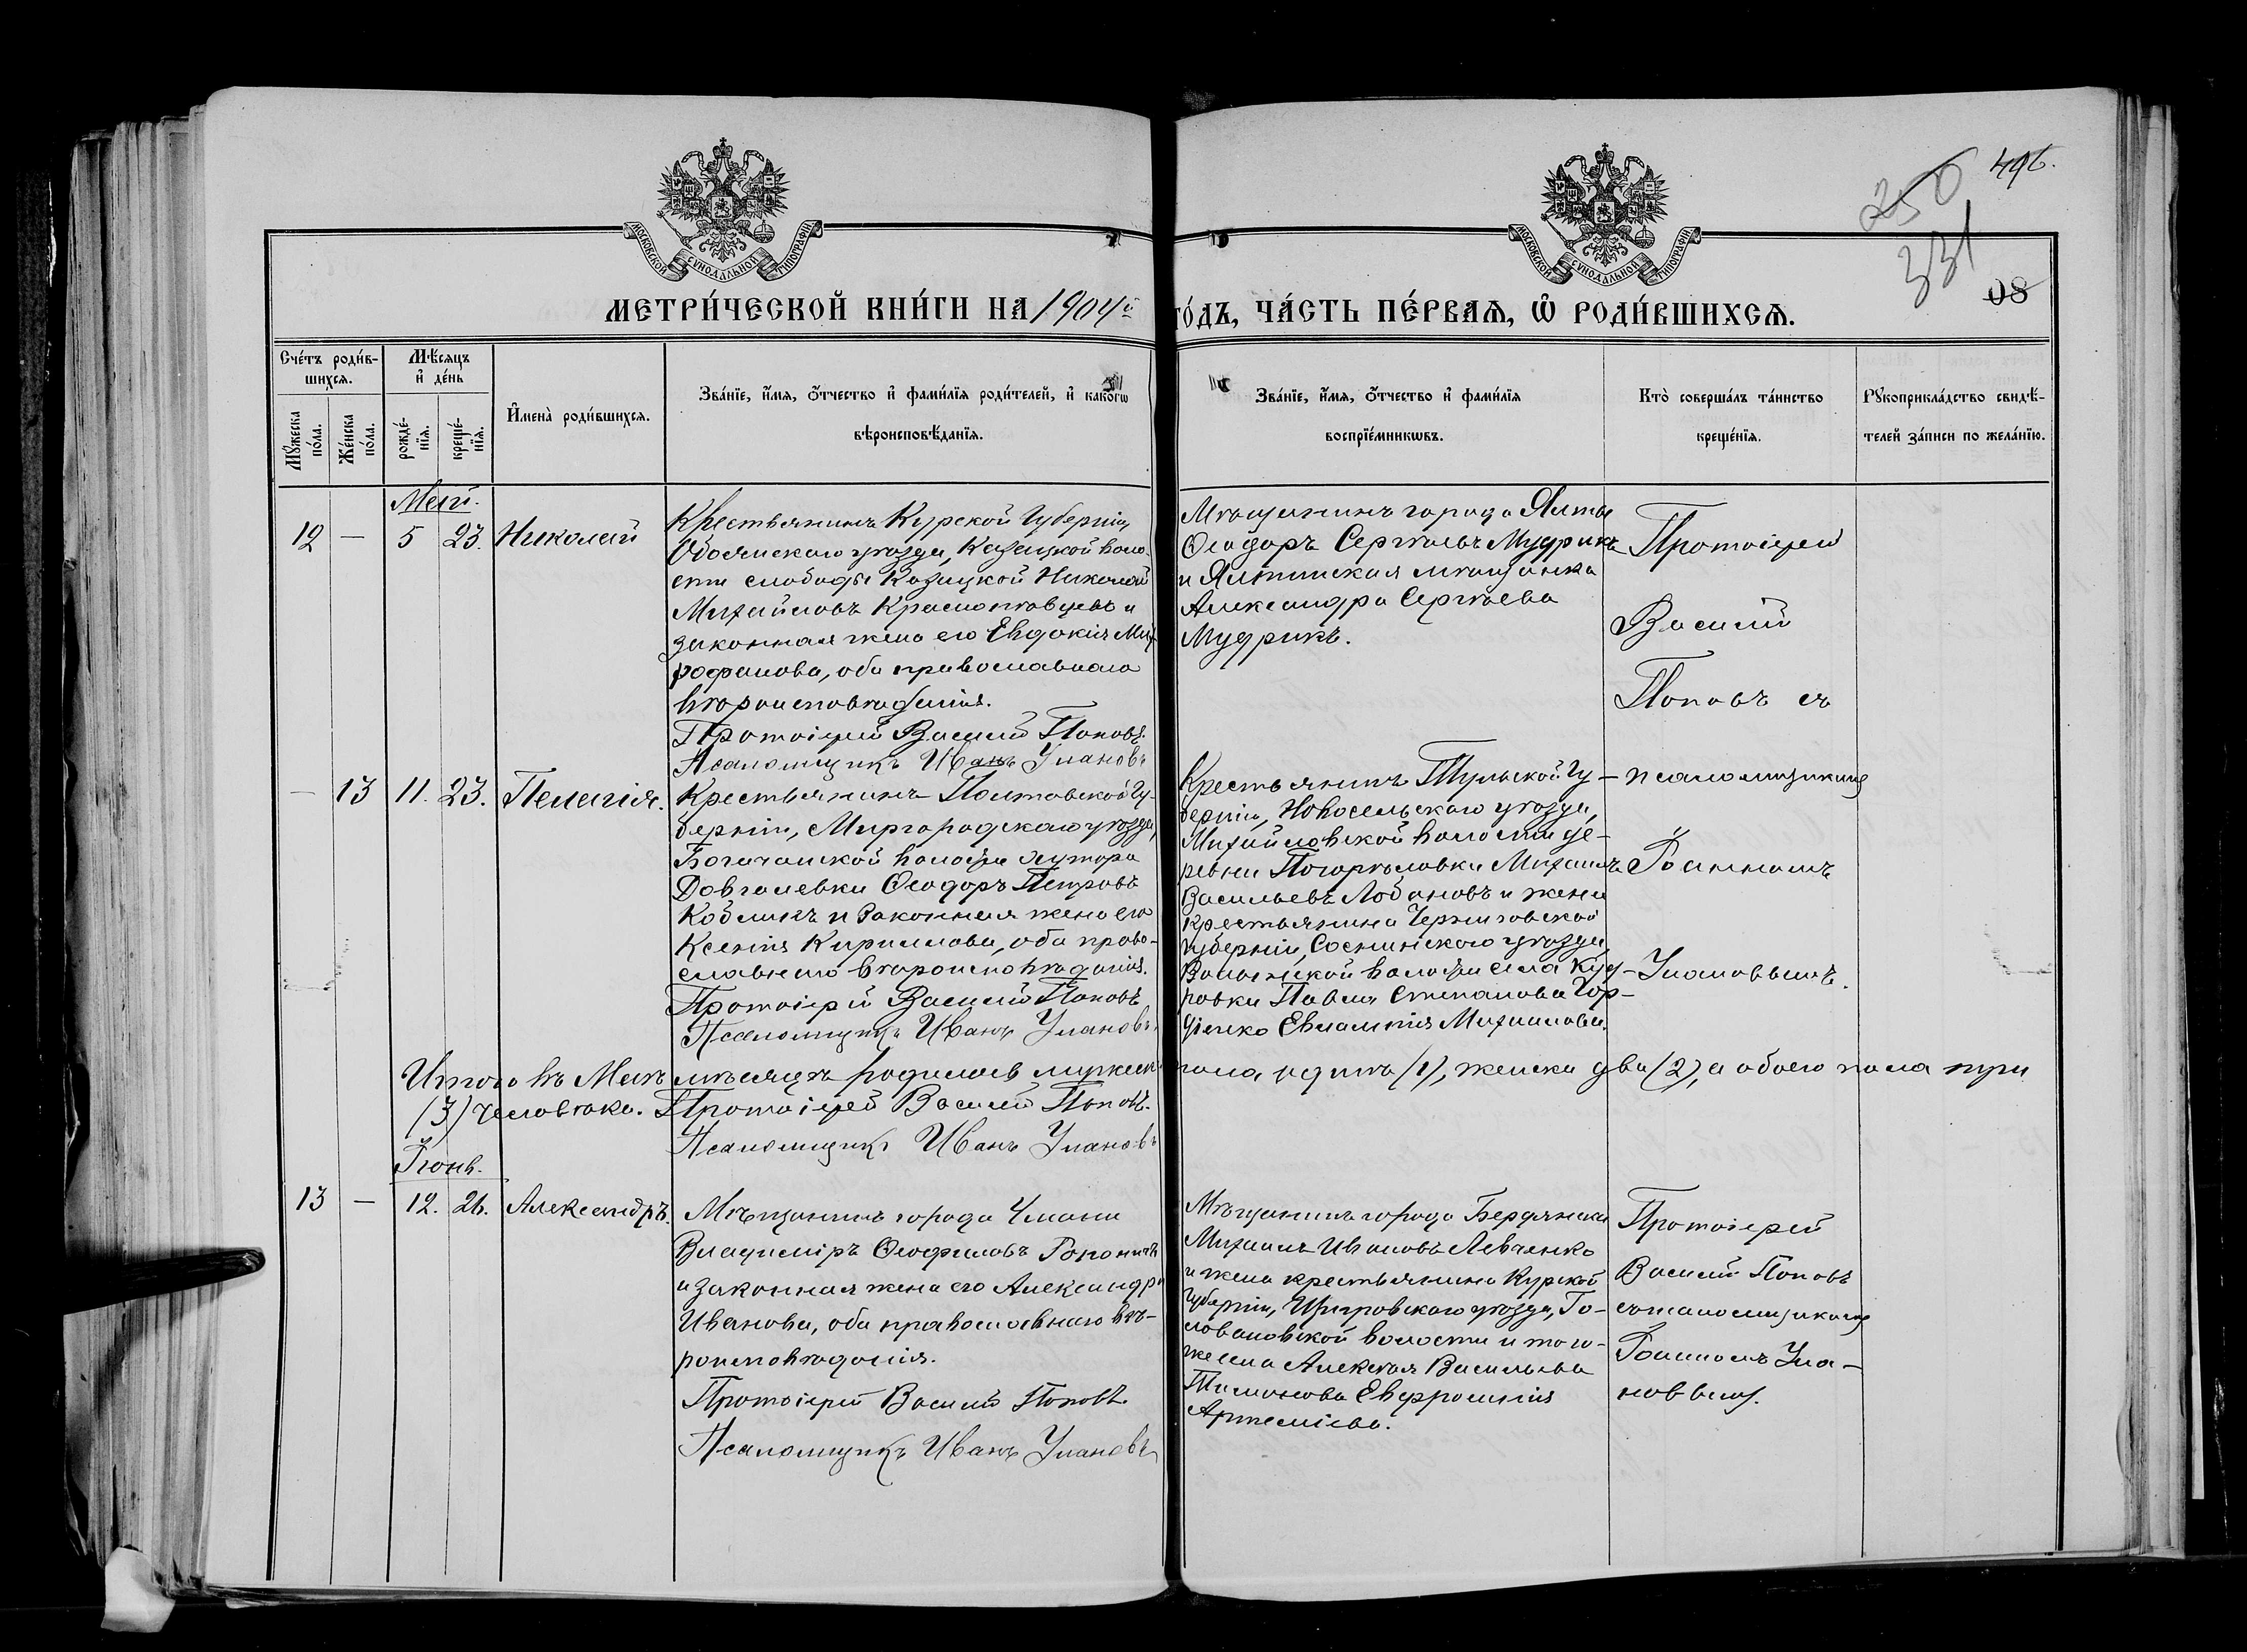 496.
250
331
08
МОСКОВСКОЙ СѴНОДАЛЬНОЙ ТИПОГРАФІИ
МОСКОВСКОЙ СѴНОДАЛЬНОЙ ТИПОГРАФІИ
МЕТРИ́ЧЕСКОЙ КНИ́ГИ НА 1904й
ГО́ДЪ, ЧА́СТЬ ПЕ́РВАѦ, Ѽ РОДИ́ВШИХСѦ.
Сче́тъ роди́в-
шихсѧ.
Мѣ́сѧцъ
и҆ де́нь
Мꙋ́жеска по́ла.
Же́нска по́ла.
рожде́-нїѧ.
креще́-нїѧ.
И҆мена̀ роди́вшихсѧ.
Зва́нїе, и҆́мѧ, ѻ҆́тчество и҆ фами́лїѧ роди́телей, и҆ како́гѡ
вѣроисповѣ́данїѧ.
Зва́нїе, и҆́мѧ, ѻ҆́тчество и҆ фами́лїѧ
воспрїе́мникѡвъ.
Кто̀ соверша́лъ та́инство
креще́нїѧ.
Рꙋкоприкла́дство свидѣ́-
телей за́писи по жела́нїю.
Май.
12 — 5 23. Николай
Крестьянинъ Курской Губерніи,
Обоянскаго уѣзда, Казацкой воло-
сти слободы Казацкой Николай
Михайловъ Краснопѣвцевъ и
законная жена его Евдокія Мит-
рофанова, оба православнаго
вѣроисповѣданія.
Протоіерей Василій Поповъ.
Псаломщикъ Иванъ Улановъ
Мѣщанинъ города Ялты
Ѳеодоръ Сергѣевъ Мудрикъ
и Ялтинская мѣщанка
Александра Сергѣева
Мудрикъ.
Протоіерей
Василій
Поповъ съ
псаломщикомъ
Іоанномъ
Улановымъ.
— 13 11. 23. Пелагія.
Крестьянинъ Полтавской Гу-
берніи, Миргородскаго уѣзда,
Богачанской волости хутора
Довгалевки Ѳеодоръ Петровъ
Кобликъ и законная жена его
Ксенія Кириллова, оба право-
славнаго вѣроисповѣданія.
Протоіерей Василій Поповъ
Псаломщикъ Иванъ Улановъ
Крестьянинъ Тульской Гу-
берніи, Новосельскаго уѣзда,
Михайловской волости де-
ревни Погорѣловки Михаилъ
Васильевъ Лобановъ и жена
крестьянина Черниговской
губерніи, Сосницкаго уѣзда,
волости села Куд-
ровки Павла Степанова Гор-
діенко Евлампія Михайлова.
Итого въ Маѣ мѣсяцѣ родилось мужеска пола одинъ (1), женска два (2), а обоего пола три
(3) человѣка. Протоіерей Василій Поповъ.
Псаломщикъ Иванъ Улановъ
Іюнь.
13 — 12. 26. Александръ.
Мѣщанинъ города Умани
Владиміръ Ѳеофиловъ
и законная жена его Александра
Иванова, оба православнаго вѣ-
роисповѣданія.
Протоіерей Василій Поповъ.
Псаломщикъ Иванъ Улановъ
Мѣщанинъ города Бердянска
Михаилъ Ивановъ Левченко
и жена крестьянина Курской
Губерніи, Щигровскаго уѣзда, Го-
ловановской волости и того-
же села Алексѣя Васильева
Тимонова Евфросинія
Артеміева.
Протоіерей
Василій Поповъ
съ псаломщикомъ
Іоанномъ Ула-
новымъ.